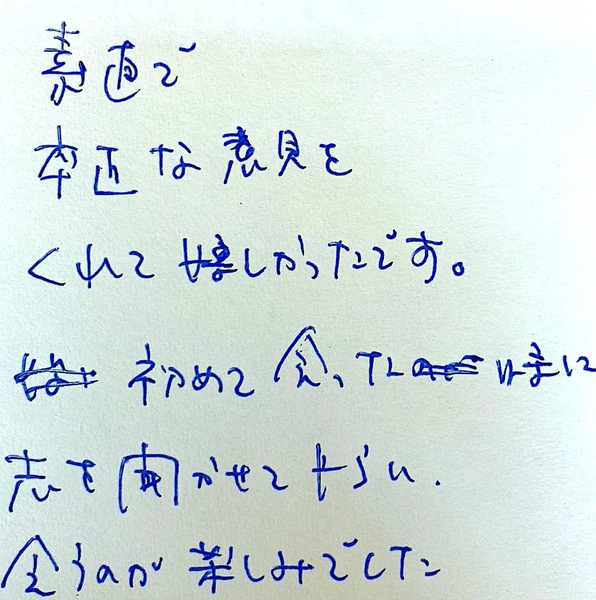 素直で
率直な意見を
くれて嬉しかったです。
初めて会った時に
志を聞かせてもらい、
会うのが楽しみでした